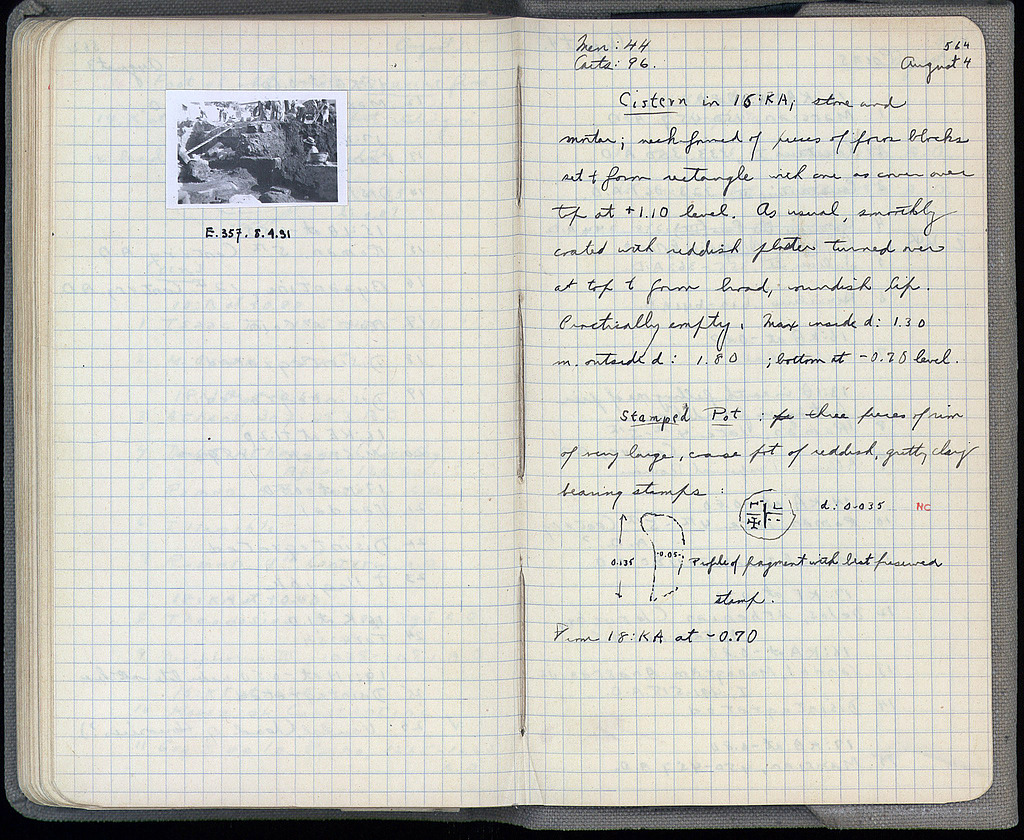 E.357. 8.4.31
Men: 44
Carts: 96.
564
August 4
Cistern in 16:KA; stone and
mortar; neck formed of pieces of poros blocks
set to form rectangle with one as cover over
top at +1.10 level. As usual, smoothly
coated with reddish plaster turned over
at top to form broad, roundish lip.
Practically empty. Max inside d: 1.30
m. outside d: 1.80 ; bottom at -0.70 level.
Stamped Pot : three pieces of rim
of very large, coarse pot of reddish, gritty clay
bearing stamps :
d: 0.035 NC
0.135 0.05 ; Profile of fragment with best preserved
stamp.
From 18:KA at -0.70